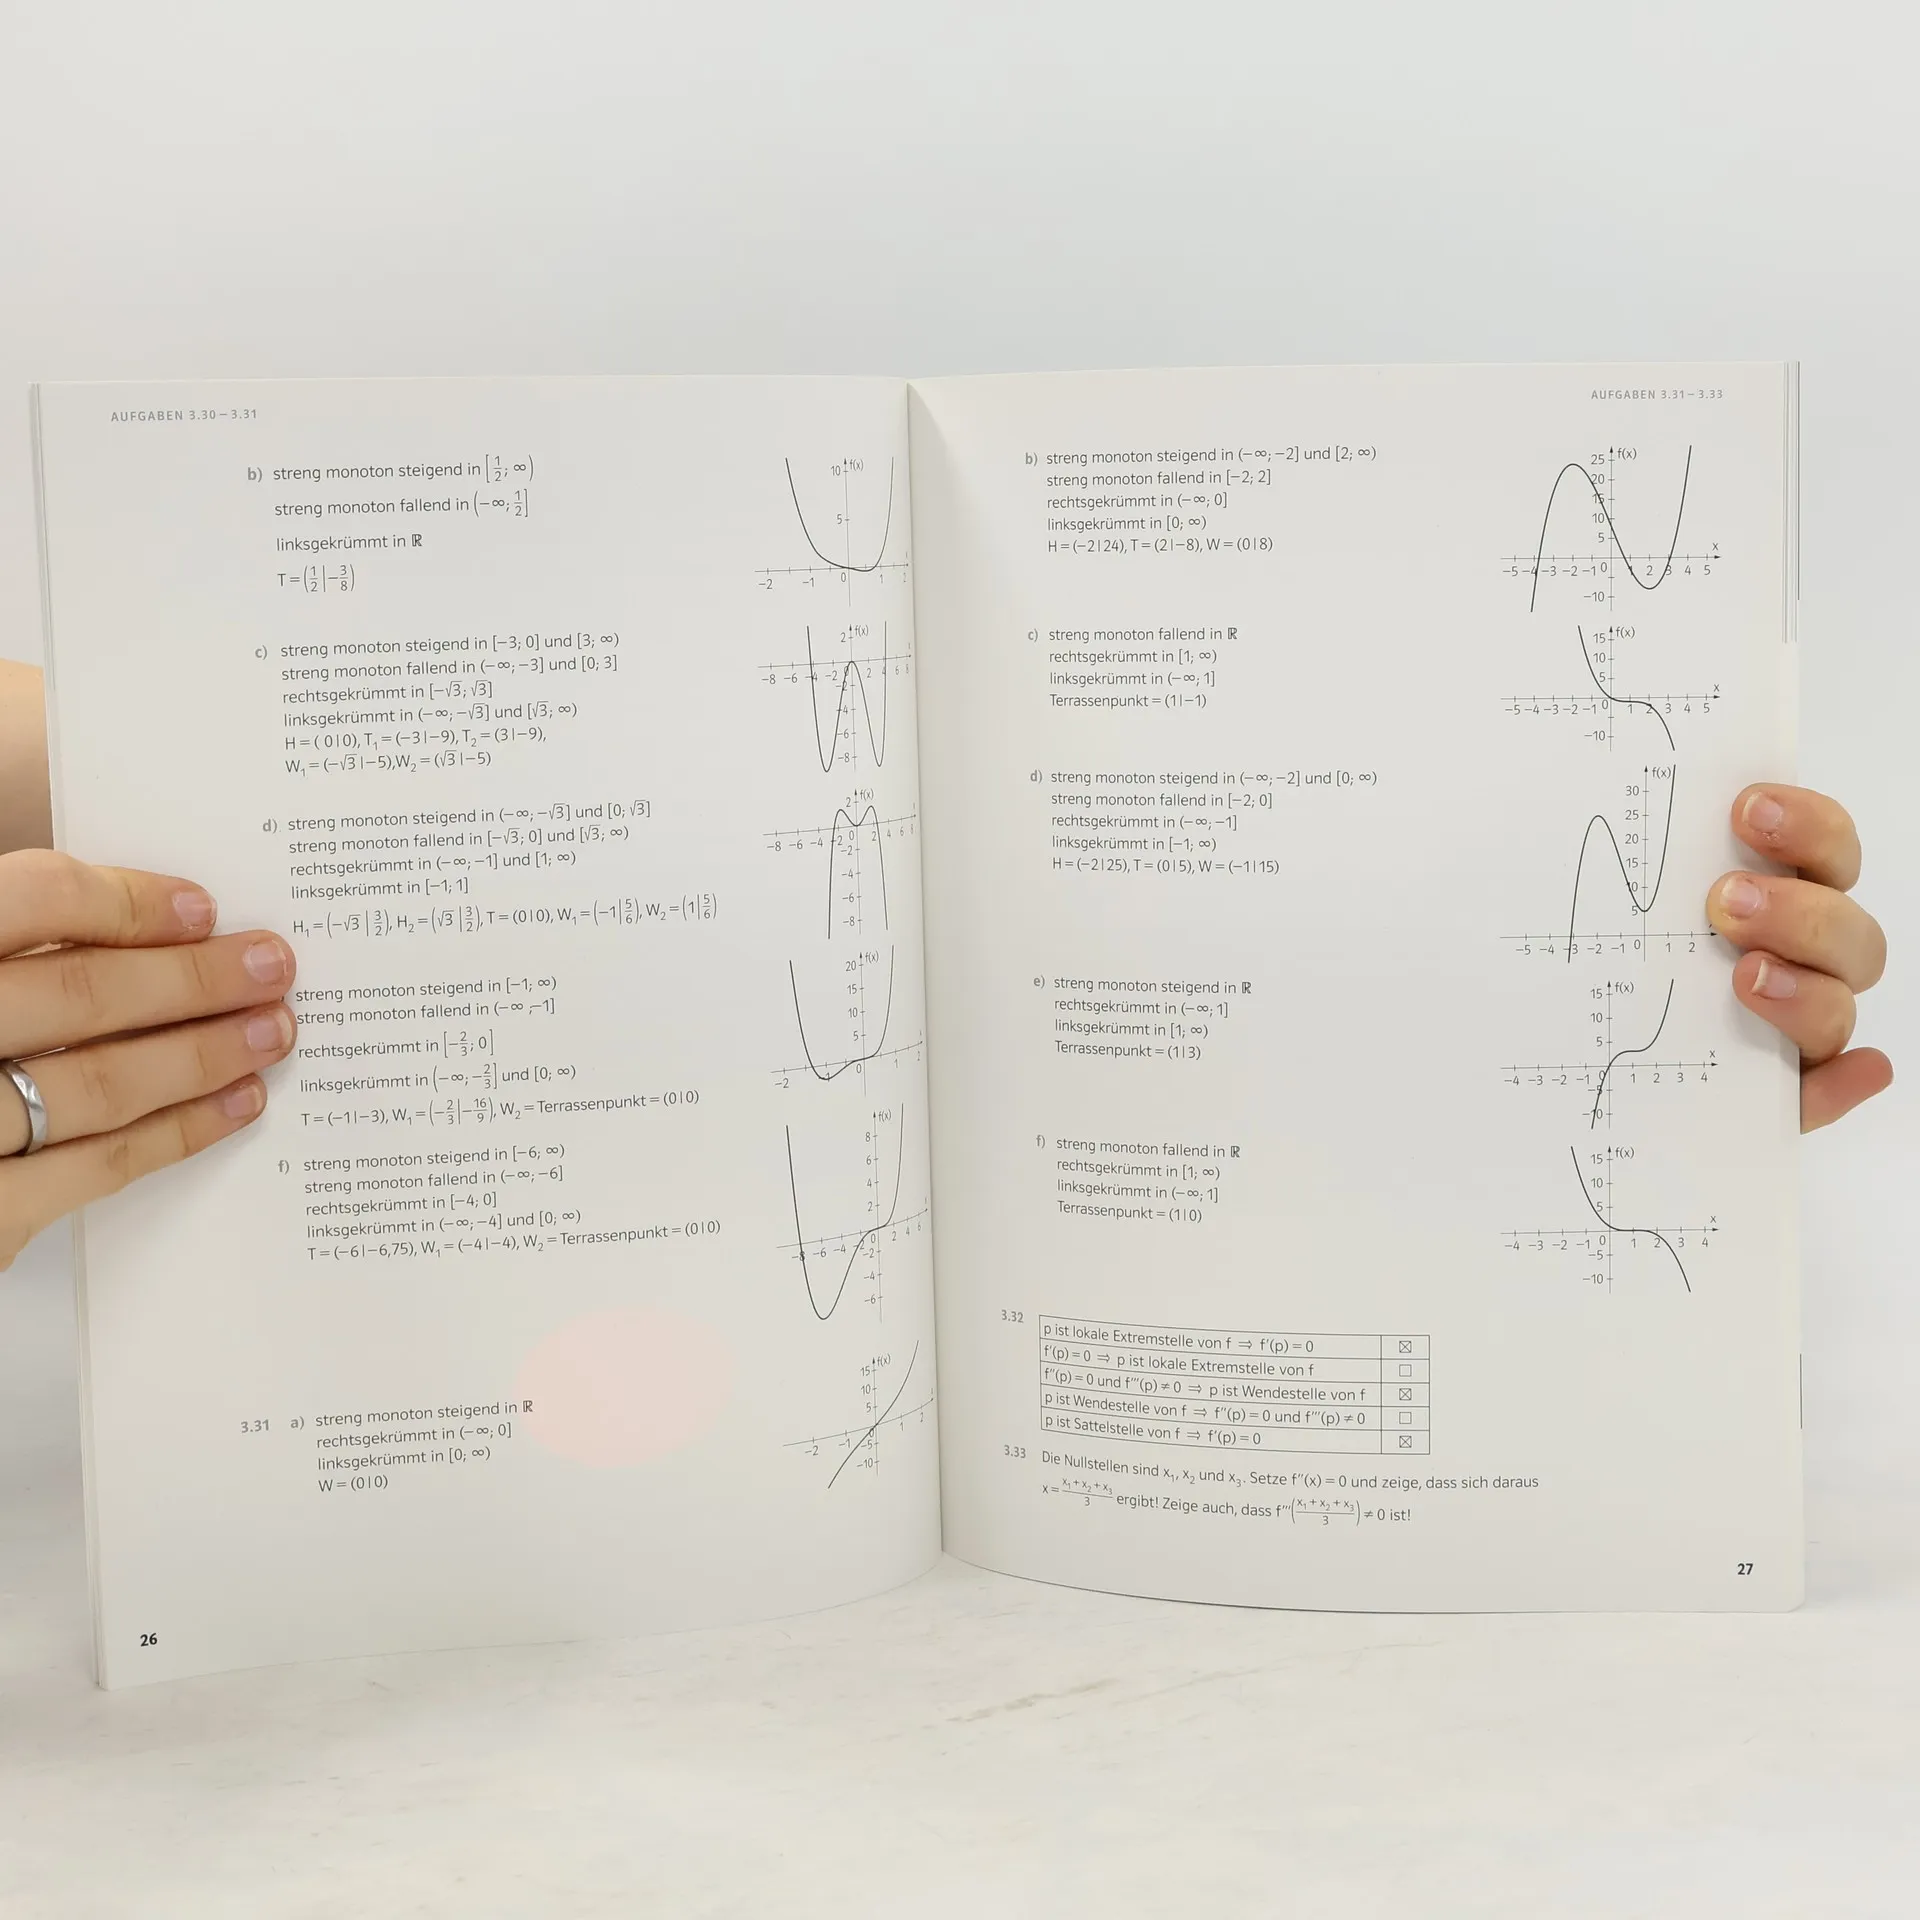 AUFGABEN 3.30 – 3.31
b) streng monoton steigend in [1/2; ∞)
streng monoton fallend in (−∞; 1/2]
linksgekrümmt in ℝ
T = (1/2 | −3/8)
10 f(x)
5
−2 −1 0 1 2
c) streng monoton steigend in [−3; 0] und [3; ∞)
streng monoton fallend in (−∞; −3] und [0; 3]
rechtsgekrümmt in [−√3; √3]
linksgekrümmt in (−∞; −√3] und [√3; ∞)
H = ( 0 | 0), T₁ = (−3 | −9), T₂ = (3 | −9),
W₁ = (−√3 | −5), W₂ = (√3 | −5)
2 f(x)
−8 −6 −4 −2 0 2 4 6 8
−2
−4
−6
−8
d) streng monoton steigend in (−∞; −√3] und [0; √3]
streng monoton fallend in [−√3; 0] und [√3; ∞)
rechtsgekrümmt in (−∞; −1] und [1; ∞)
linksgekrümmt in [−1; 1]
H₁ = (−√3 | 3/2), H₂ = (√3 | 3/2), T = (0 | 0), W₁ = (−1 | 5/6), W₂ = (1 | 5/6)
2 f(x)
−8 −6 −4 −2 0 2 4 6 8
−2
−4
−6
−8
streng monoton steigend in [−1; ∞)
streng monoton fallend in (−∞ ; −1]
rechtsgekrümmt in [−2/3; 0]
linksgekrümmt in (−∞; −2/3] und [0; ∞)
T = (−1 | −3), W₁ = (−2/3 | −16/9), W₂ = Terrassenpunkt = (0 | 0)
20 f(x)
15
10
5
−2 −1 0 1 2
f) streng monoton steigend in [−6; ∞)
streng monoton fallend in (−∞; −6]
rechtsgekrümmt in [−4; 0]
linksgekrümmt in (−∞; −4] und [0; ∞)
T = (−6 | −6,75), W₁ = (−4 | −4), W₂ = Terrassenpunkt = (0 | 0)
f(x)
8
6
4
2
−8 −6 −4 −2 0 2 4 6
−2
−4
−6
3.31 a) streng monoton steigend in ℝ
rechtsgekrümmt in (−∞; 0]
linksgekrümmt in [0; ∞)
W = (0 | 0)
15 f(x)
10
5
−2 −1 0 1 2
−5
−10
26
AUFGABEN 3.31 – 3.33
b) streng monoton steigend in (−∞; −2] und [2; ∞)
streng monoton fallend in [−2; 2]
rechtsgekrümmt in (−∞; 0]
linksgekrümmt in [0; ∞)
H = (−2 | 24), T = (2 | −8), W = (0 | 8)
25 f(x)
20
15
10
5
x
−5 −4 −3 −2 −1 0 1 2 3 4 5
−10
c) streng monoton fallend in ℝ
rechtsgekrümmt in [1; ∞)
linksgekrümmt in (−∞; 1]
Terrassenpunkt = (1 | −1)
15 f(x)
10
5
x
−5 −4 −3 −2 −1 0 1 2 3 4 5
−10
d) streng monoton steigend in (−∞; −2] und [0; ∞)
streng monoton fallend in [−2; 0]
rechtsgekrümmt in (−∞; −1]
linksgekrümmt in [−1; ∞)
H = (−2 | 25), T = (0 | 5), W = (−1 | 15)
f(x)
30
25
20
15
10
5
−5 −4 −3 −2 −1 0 1 2
e) streng monoton steigend in ℝ
rechtsgekrümmt in (−∞; 1]
linksgekrümmt in [1; ∞)
Terrassenpunkt = (1 | 3)
15 f(x)
10
5
x
−4 −3 −2 −1 0 1 2 3 4
−5
−10
f) streng monoton fallend in ℝ
rechtsgekrümmt in [1; ∞)
linksgekrümmt in (−∞; 1]
Terrassenpunkt = (1 | 0)
15 f(x)
10
5
x
−4 −3 −2 −1 0 1 2 3 4
−5
−10
3.32
p ist lokale Extremstelle von f ⇒ f′(p) = 0 ☒
f′(p) = 0 ⇒ p ist lokale Extremstelle von f ☐
f″(p) = 0 und f‴(p) ≠ 0 ⇒ p ist Wendestelle von f ☒
p ist Wendestelle von f ⇒ f″(p) = 0 und f‴(p) ≠ 0 ☐
p ist Sattelstelle von f ⇒ f′(p) = 0 ☒
3.33 Die Nullstellen sind x₁, x₂ und x₃. Setze f″(x) = 0 und zeige, dass sich daraus
x = (x₁ + x₂ + x₃)/3 ergibt! Zeige auch, dass f‴((x₁ + x₂ + x₃)/3) ≠ 0 ist!
27